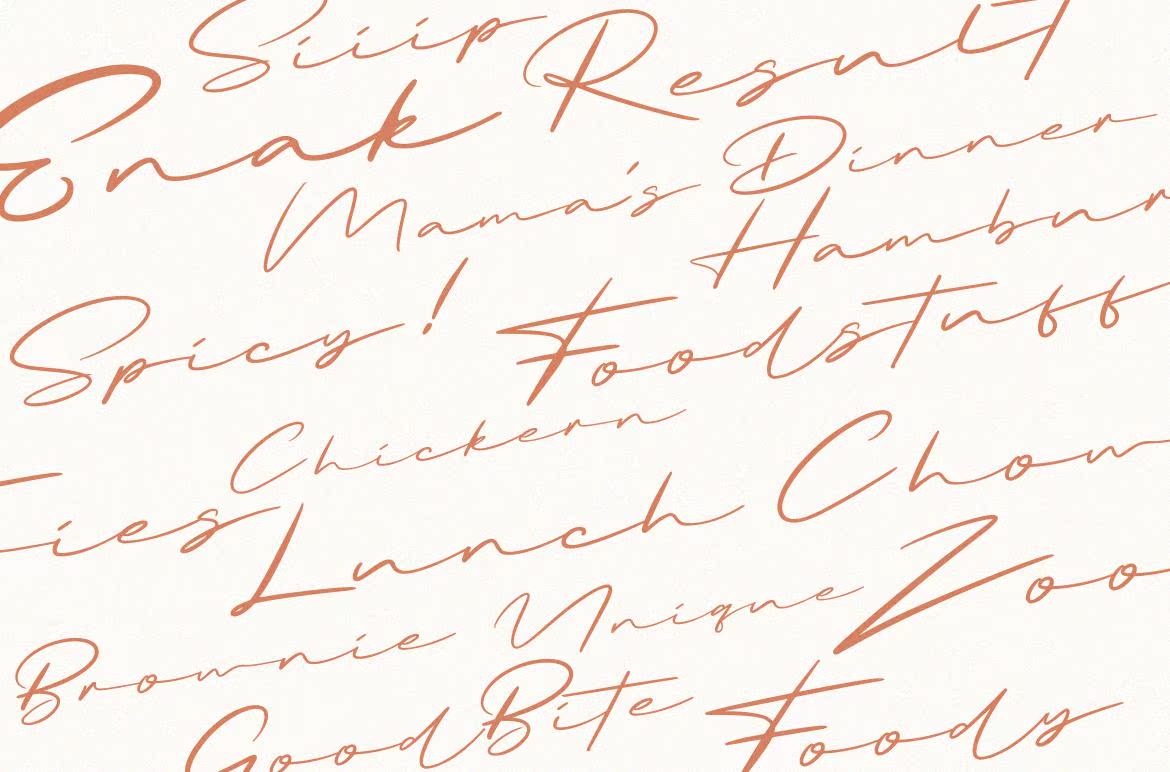 Siiip Result
Enak
Mama's Dinner
Spicy! Foodstuff
Chickern
ies Lunch
Brownie Unique Zoo
Good Bite Foody